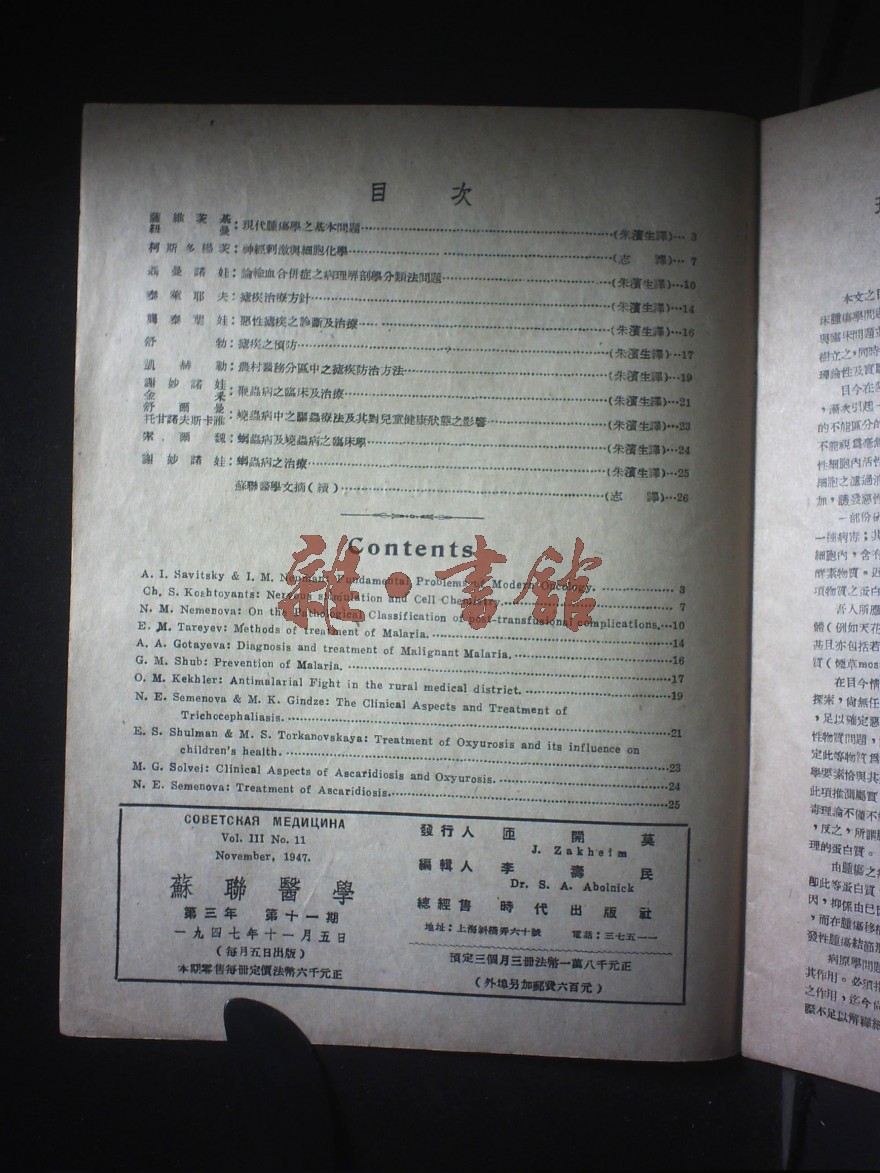 目 次
薩維茨基
紐曼：現代腫瘍學之基本問題……(朱濱生譯)…3
柯斯多楊茨：神經刺激與細胞化學……(志 譯)…7
聶曼諾娃：論輸血合併症之病理解剖學分類法問題……(朱濱生譯)…10
泰萊耶夫：瘧疾治療方針……(朱濱生譯)…14
惡性瘧疾之診斷及治療……(朱濱生譯)…16
舒勃：瘧疾之預防……(朱濱生譯)…17
凱赫勒：農村醫務分區中之瘧疾防治方法……(朱濱生譯)…19
謝妙諾娃
金采：鞭蟲病之臨床及治療……(朱濱生譯)…21
舒爾曼
托甘諾夫斯卡雅：蟯蟲病中之驅蟲療法及其對兒童健康狀態之影響……(朱濱生譯)…23
索爾魏：蛔蟲病及蟯蟲病之臨床學……(朱濱生譯)…24
謝妙諾娃：蛔蟲病之治療……(朱濱生譯)…25
蘇聯醫學文摘（續）……(志 譯)…26
Contents
A. I. Savitsky & I. M. Neuman: Fundamental Problems of Modern Oncology. …… 3
Ch. S. Koshtoyants: Nervous stimulation and Cell Chemistry. …… 7
N. M. Nemenova: On the Pathological Classification of post-transfusional complications. … 10
E. M. Tareyev: Methods of treatment of Malaria. …… 14
A. A. Gotayeva: Diagnosis and treatment of Malignant Malaria. …… 16
G. M. Shub: Prevention of Malaria. …… 17
O. M. Kekhler: Antimalarial Fight in the rural medical district. …… 19
N. E. Semenova & M. K. Gindze: The Clinical Aspects and Treatment of
Trichocephaliasis. …… 21
E. S. Shulman & M. S. Torkanovskaya: Treatment of Oxyurosis and its influence on
children's health. …… 23
M. G. Solvei: Clinical Aspects of Ascaridiosis and Oxyurosis. …… 24
N. E. Semenova: Treatment of Ascaridiosis. …… 25
雜·書館
СОВЕТСКАЯ МЕДИЦИНА
Vol. III No. 11
November, 1947.
蘇聯醫學
第三年 第十一期
一九四七年十一月五日
（每月五日出版）
本期零售每冊定價法幣六千元正
發行人 匝開莫
J. Zakheim
編輯人 李壽民
Dr. S. A. Abolnick
總經售 時代出版社
地址：上海斜橋弄六十號 電話：三七五一一
預定三個月三冊法幣一萬八千元正
（外埠另加郵費六百元）
本文之目
床腫瘍學問題
與臨床問題立
樹立之，同時
理論性及實踐
目今在
，漸次引起一
的不能區分的
不能視爲毫無
性細胞內活性
細胞之濾過液
加，誘發惡性
一部份
一種病毒；其
細胞內，含有
酵素物質。近
項物質之蛋白
吾人所應
體（例如天花
甚且亦包括若
質（煙草mos
在目今情
探索，尙無任
，足以確定惡
性物質問題，
定此等物質爲
學要素恰與其
此項推測屬實
毒理論不僅不
，反之，所謂
理的蛋白質。
由腫瘍之
卽此等蛋白質
因，抑係由已
，而在腫瘍移
發性腫瘍結節
病原學問題
其作用。必須指
之作用，迄今
際不足以解釋